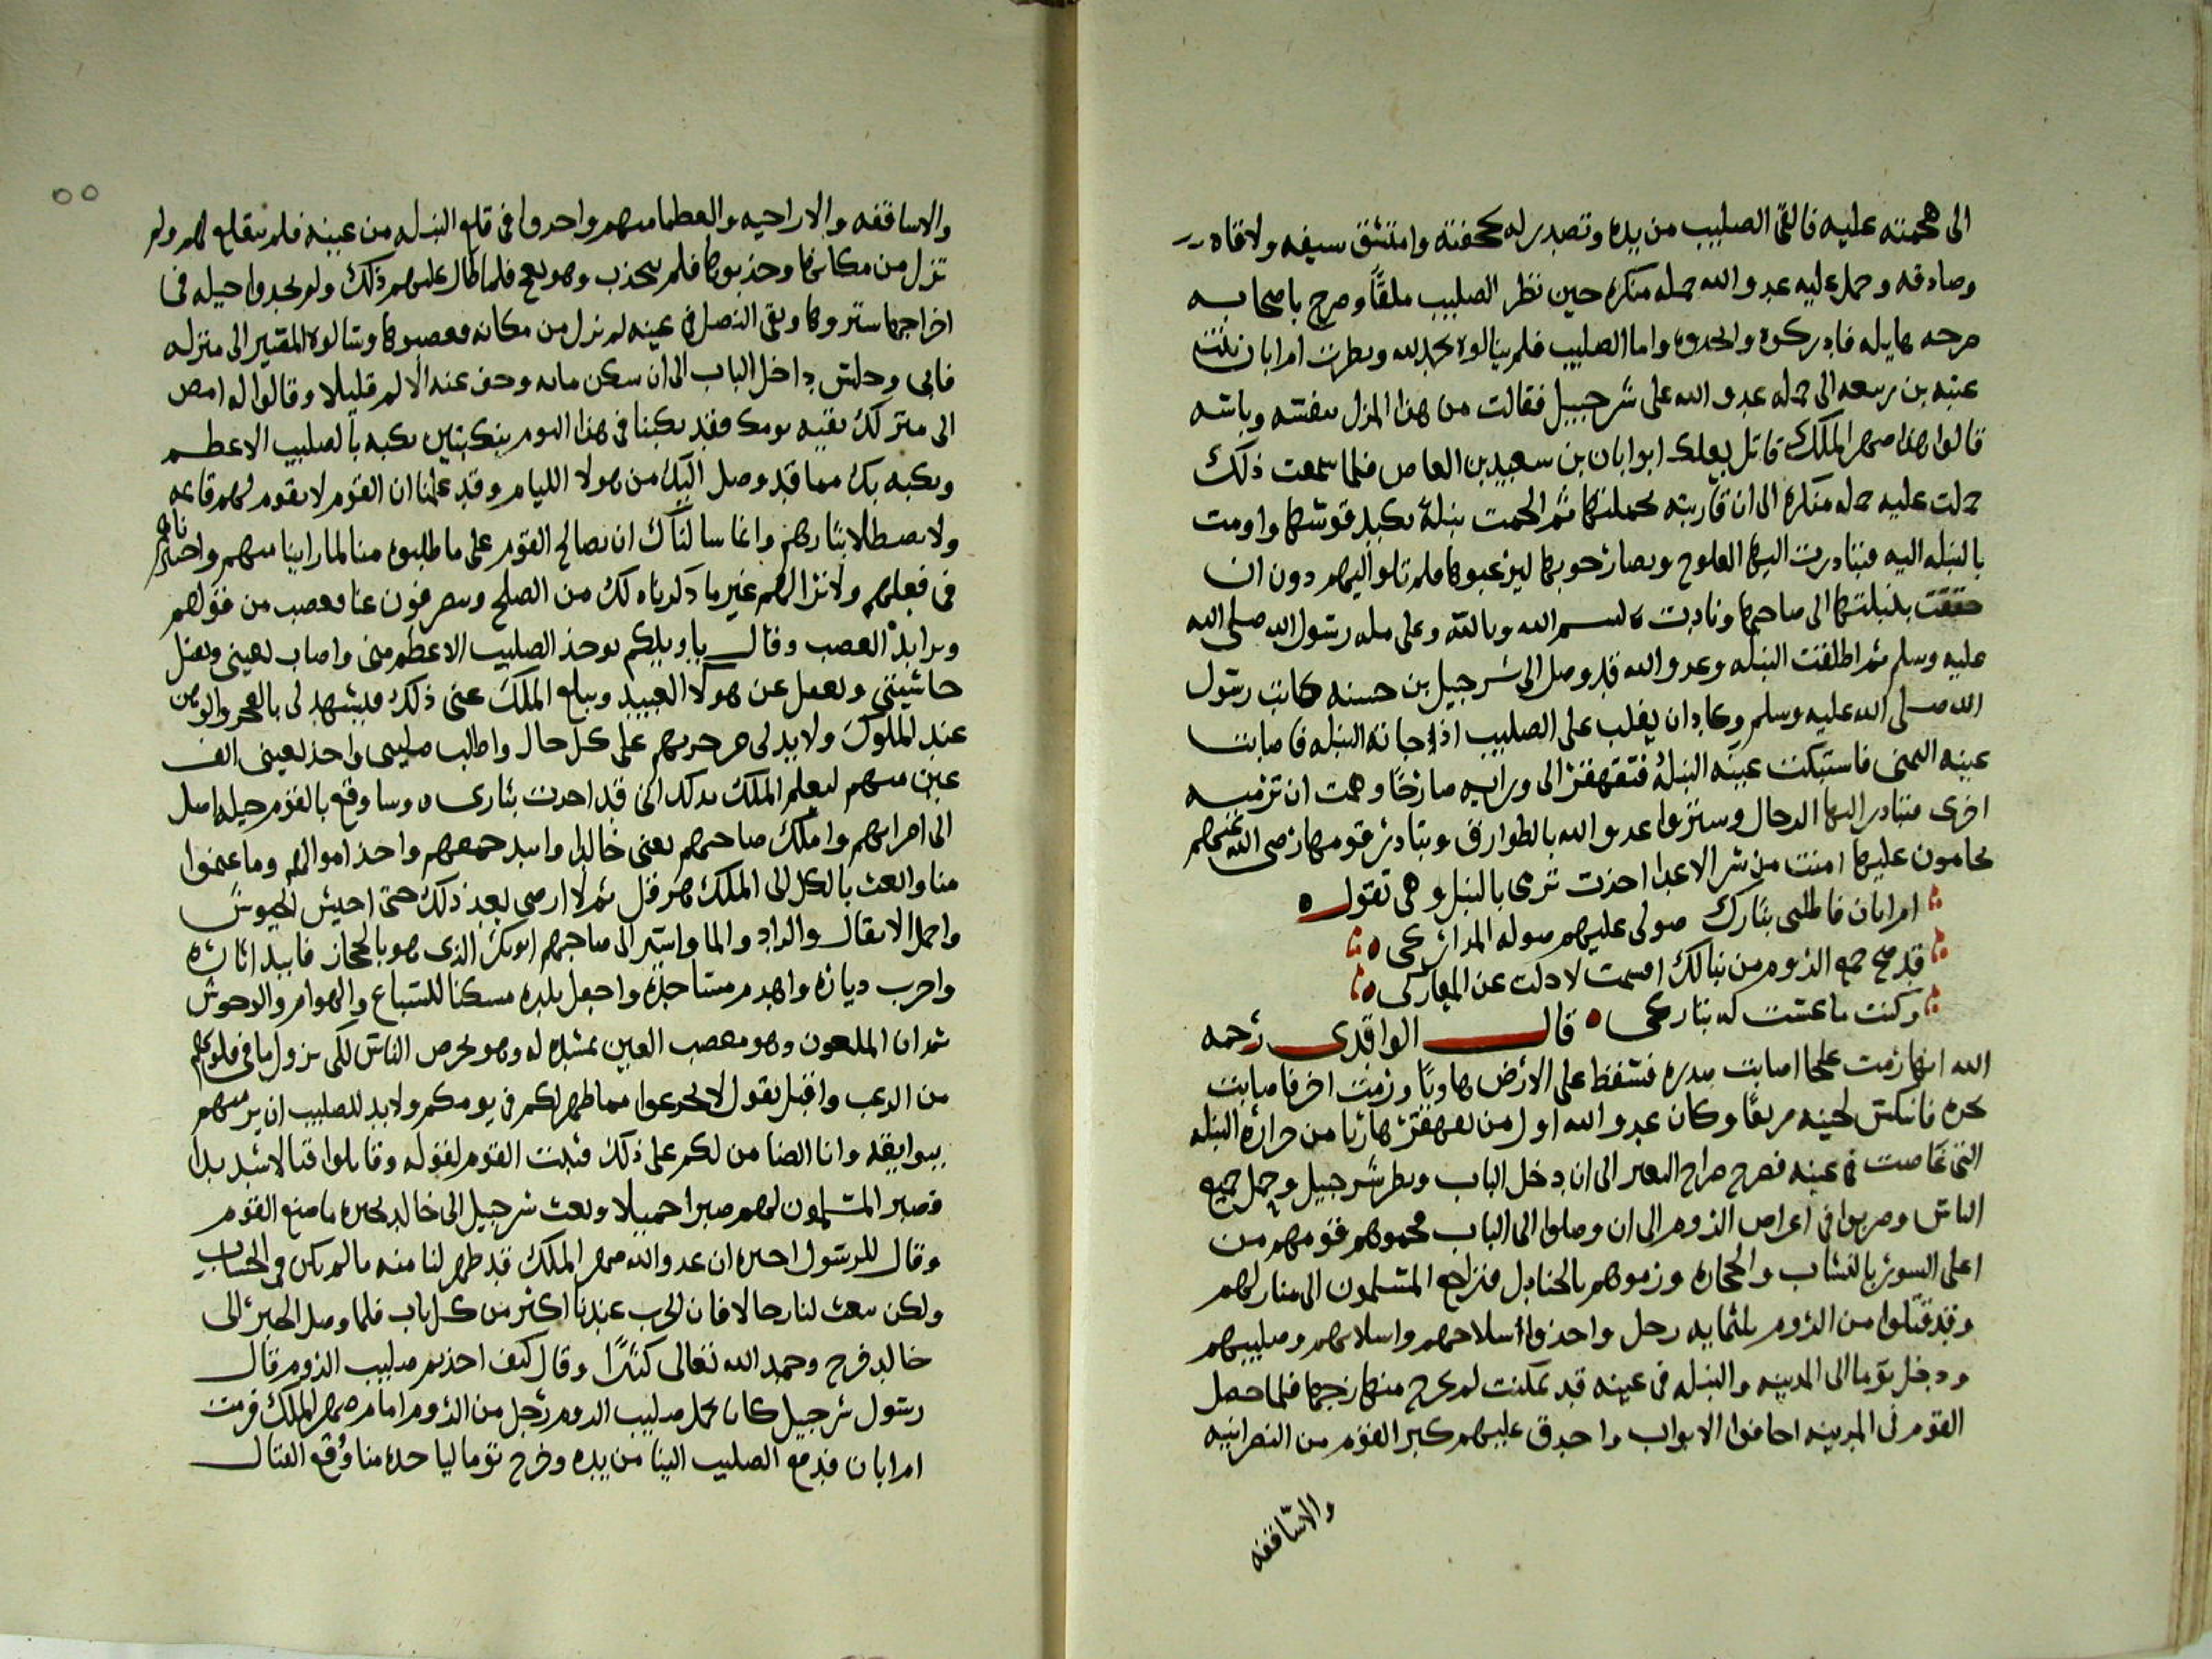 الى هجمته عليه فالقى الصليب من يده وتصدر له بحجفته وامتشق سيفه ولاقاه
وصادفه وحمل عليه عدو الله حمله منكره حين نظر الصليب ملقًا وصرح باصحابه
صرحه هايله فادركوه وانحدوه واما الصليب فلم ينالوه بحمد الله ونطرت امرابان بنت
عتبه بن ربيعه الى حمله عدو الله على شرحبيل فقالت من هذا المدل بنفسه وباسه
قالوا هذا صهر الملك قاتل بعلك ابو ابان بن سعيد بن العاص فلما سمعت ذلك
حملت عليه حمله منكره الى ان قاربته بحملتها ثم الحمت بنبلة بكبد قوسها واومت
بالنبله اليه فتبادرت اليها العلوج وتصارخوا بها ليزعبوها فلم تلو اليهم دون ان
حققت بنبلتها الى صاحبها ونادت بسم الله وبالله وعلى مله رسول الله صلى الله
عليه وسلم ثم اطلقت النبله وعدو الله قد وصل الى شرحبيل بن حسنه كاتب رسول
الله صلى الله عليه وسلم وكاد ان يغلب على الصليب اذ جاته النبله فاصابت
عينه اليمنى فاشتبكت عينه النبلة فتقهقر الى ورايه صارخًا وهمت ان ترميه
اخرى فتبادر اليها الرجال وستروا عدو الله بالطوارق وتبادر قومها رضى الله عنهم
يحامون عليها امنت من شر الاعدا احذت ترمى بالنبل وهى تقول
امرابان فاطلبى بثارك صولى عليهم صوله المدارك
قد ضج جمع الروم من نبالك اقسمت لا دلت عن المعارك
وكنت ما عشت له بتارك قال الواقدى رحمه
الله انها رمت علجا اصابت صدره فسقط على الارض هاويًا ورمت اخر فاصابت
نحره فانتكس لحينه صريعًا وكان عدو الله اول من تقهقر هاربا من حرارة النبله
التى غاصت فى عينه فصرح صراح البعير الى ان دخل الباب ونطر شرحبيل وحمل جميع
الناس وضربوا فى اعراض الروم الى ان وصلوا الى الباب فحموهم قومهم من
اعلى السور بالنشاب والحجاره ورموهم بالجنادل فتراجع المسلمون الى منازلهم
وقد قتلوا من الروم ثلثمايه رجل واحذوا سلاحهم واسلابهم وصليبهم
ودخل توما الى المدينه والنبله فى عينه قد تمكنت لم يخرج منها زجها فلما حصل
القوم فى المدينه احافوا الابواب واحدق عليهم كبير القوم من النصرانيه
والاساقفه
والاساقفه والاراحيه والعطما منهم واحدوا فى قلع النبله من عينه فلم ينقلع لهم ولم
تزل من مكانها وجذبوها فلم ينجذب وهو يعج فلما طال عليهم ذلك ولم يجدوا حيله فى
اخراجها ستروها وبقى النصل فى عينه لم يزل من مكانه فعصبوها وسالوه المسير الى منزله
فابى وجلس داخل الباب الى ان سكن مابه وحف عنه الالم قليلا وقالوا له امض
الى منزلك بقيه يومك فقد نكبنا فى هذا اليوم بنكبتين نكبه بالصليب الاعطم
ونكبه بك مما قد وصل اليك من هولا الليام وقد علمنا ان القوم لا يقوم لهم قاعه
ولا يصطلا بنارهم وانما سالناك ان نصالح القوم على ما طلبوه منا لما راينا منهم واحتبر ناهم
فى فعلهم ولا نرا لهم غير ما ذكرناه لك من الصلح وينصرفون عنا فعصب من قولهم
وبرايد العصب وقال ياويلكم يوحذ الصليب الاعطم منى واصاب لعينى وبقتل
حاشيتى ونعمل عن هولا العبيد ويبلغ الملك عنى ذلك فيشهد لى بالعجر والوهن
عند الملوك ولا بد لى من حربهم على كل حال واطلب صليبى واحذ لعينى الف
عين منهم ليعلم الملك بذلك انى قد احدت بثارى وساوقع بالقوم حيله اصل
الى امرايهم واملك صاحبهم يعنى خالد وابيد جمعهم واحذ اموالهم وما غنموا
منا وابعث بالكل الى الملك هرقل ثم لا ارضى بعد ذلك حتى اجيش الجيوش
واحمل الاثقال والزاد والما واسير الى صاحبهم ابو بكر الذى هو بالحجاز فابيد اثاره
واخرب دياره واهدم مساجده واجعل بلده مسكنا للسباع والهوام والوحوش
ثم ان الملعون وهو معصب العين بمشده له وهو يحرص الناس لكى يزول ما فى قلوبهم
من الرعب واقبل يقول لا تجزعوا مما ظهر لكم فى يومكم ولا بد للصليب ان يرميهم
ببوايقه وانا الضامن لكم على ذلك فثبت القوم لقوله وقاتلوا قتالا شديدا
فصبر المسلمون لهم صبرا جميلا وبعث شرحبيل الى خالد يخبره ما صنع القوم
وقال للرسول احبره ان عدو الله صهر الملك قد ظهر لنا منه ما لم يكن فى الحساب
ولكن يبعث لنا رجالا فان الحرب عندنا اكثر من كل باب فلما وصل الخبر الى
خالد فرح وحمد الله تعالى كثيرًا وقال كيف احذتم صليب الروم قال
رسول شرجبيل كان يحمل صليب الروم رجل من الروم امام صهر الملك فرمت
امرابان فدفع الصليب الينا من يده وخرج توما لياخده منا وُقع القتال